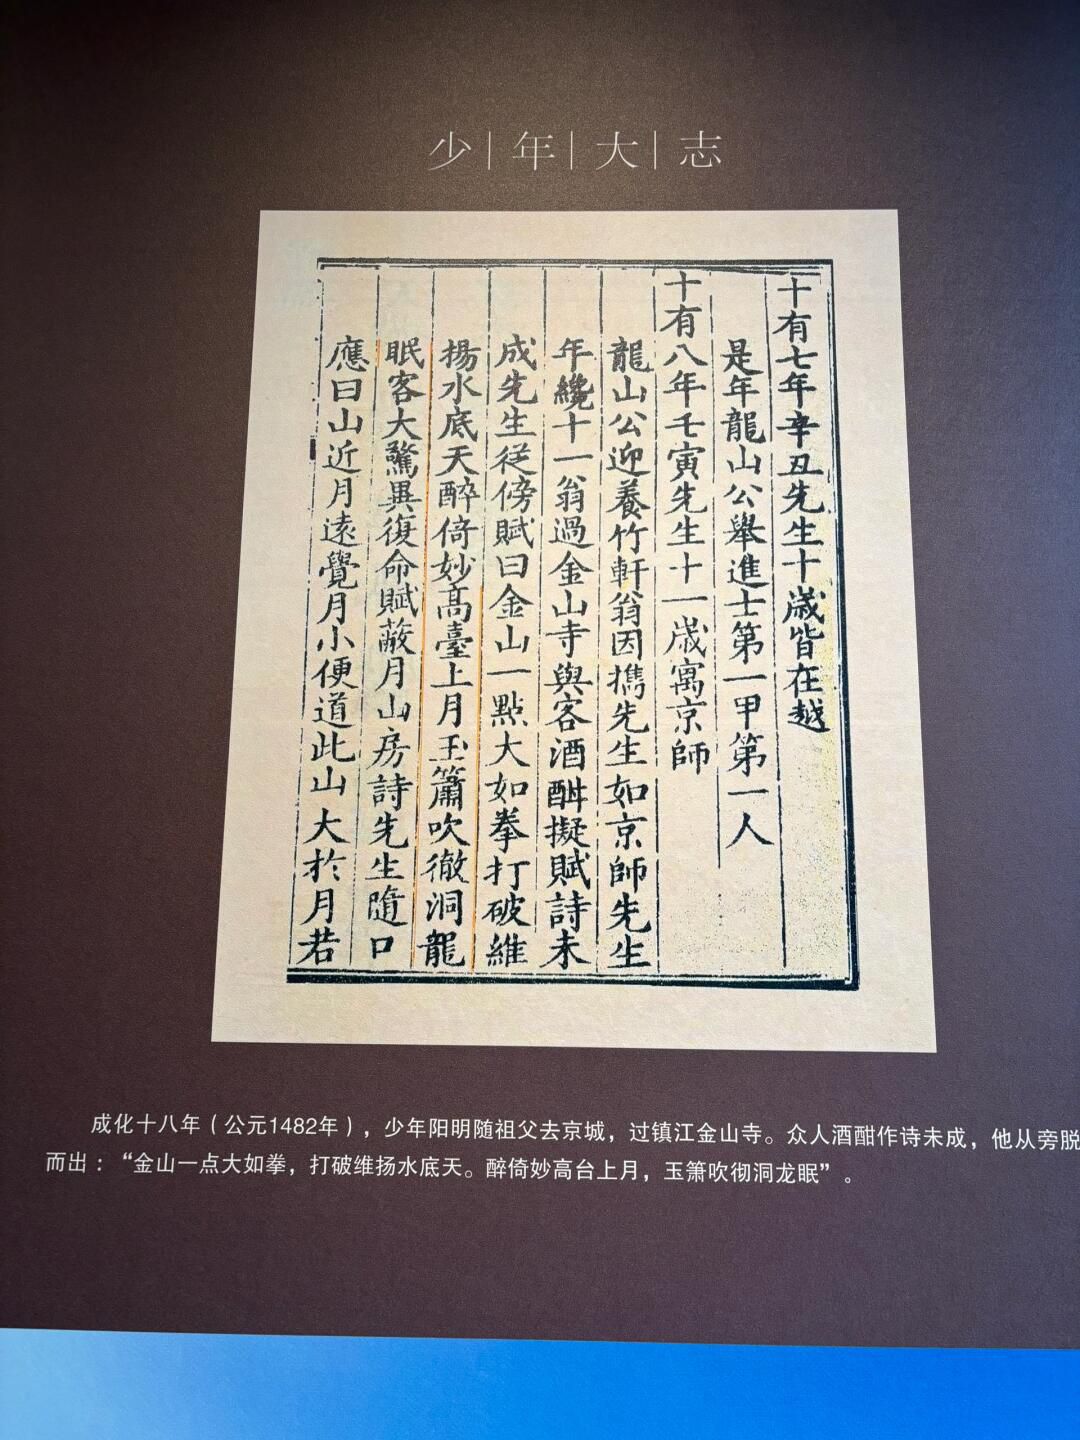 少年大志
十有七年辛丑先生十歲皆在越
是年龍山公舉進士第一甲第一人
十有八年壬寅先生十一歲寓京師
龍山公迎養竹軒翁因攜先生如京師先生
年纔十一翁過金山寺與客酒酣擬賦詩未
成先生從傍賦曰金山一點大如拳打破維
揚水底天醉倚妙高臺上月玉簫吹徹洞龍
眠客大驚異復命賦蔽月山房詩先生隨口
應曰山近月遠覺月小便道此山大於月若
成化十八年（公元1482年），少年阳明随祖父去京城，过镇江金山寺。众人酒酣作诗未成，他从旁脱
而出：“金山一点大如拳，打破维扬水底天。醉倚妙高台上月，玉箫吹彻洞龙眠”。